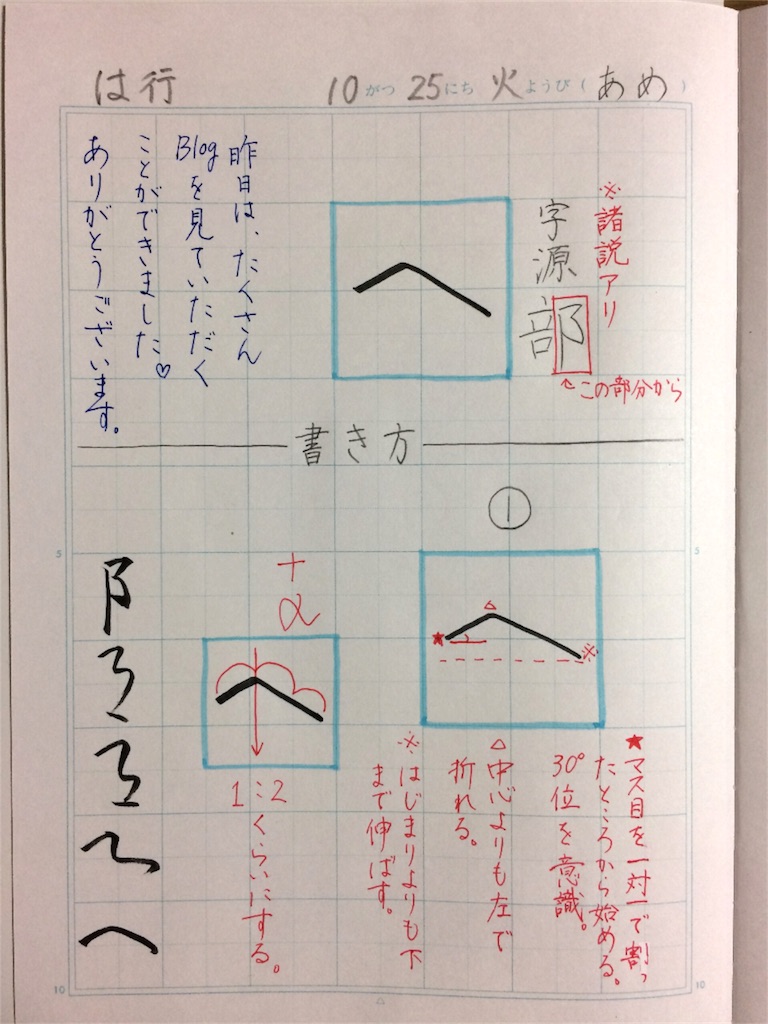 は行 10がつ 25にち 火ようび(あめ)
※諸説アリ
字源
部
↑この部分から
へ
昨日は、たくさん
Blogを見ていただく
ことができました♡
ありがとうございます。
書き方
①
へ
△
★
※
★マス目を一対一で割っ
たところから始める。
30°位を意識。
△中心よりも左で
折れる。
※はじまりよりも下
まで伸ばす。
+α
へ
1:2
くらいにする。
阝
へ
5
5
10
10